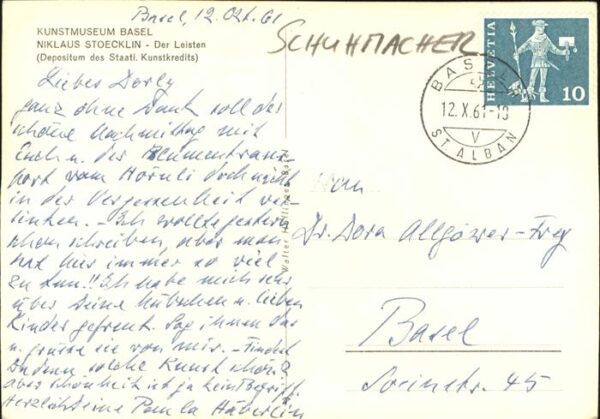 Basel, 12. Okt. 61
KUNSTMUSEUM BASEL
NIKLAUS STOECKLIN - Der Leisten
(Depositum des Staatl. Kunstkredits)
SCHUHMACHER
HELVETIA
10
BASEL
12.X.61-19
V
ST. ALBAN
Liebes Dorly
ganz ohne Dank soll der
schöne Nachmittag mit
Euch u. der Blumentrans-
port vom Hörnli doch nicht
in der Vergessenheit ver-
sinken. - Ich wollte gestern
schon schreiben, aber man
hat hier immer so viel
zu tun!! Ich habe mich sehr
über Deine hübschen u. lieben
Kinder gefreut. Sag ihnen das
u. grüsse sie von mir. - Findest
Du denn solche Kunst schön?
aber Schönheit ist ja kein Begriff.
Herzlich Deine Paula Häberlin
Walter Höflinger Basel
Frau
Dr. Dora Allgöwer-Frey
Basel
Sorinstr. 45